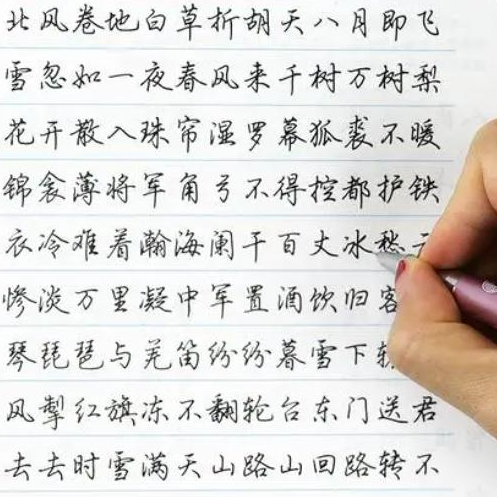 北风卷地白草折胡天八月即飞
雪忽如一夜春风来千树万树梨
花开散入珠帘湿罗幕狐裘不暖
锦衾薄将军角弓不得控都护铁
衣冷难着瀚海阑干百丈冰愁
惨淡万里凝中军置酒饮归客
琴琵琶与羌笛纷纷暮雪下
风掣红旗冻不翻轮台东门送君
去去时雪满天山路山回路转不